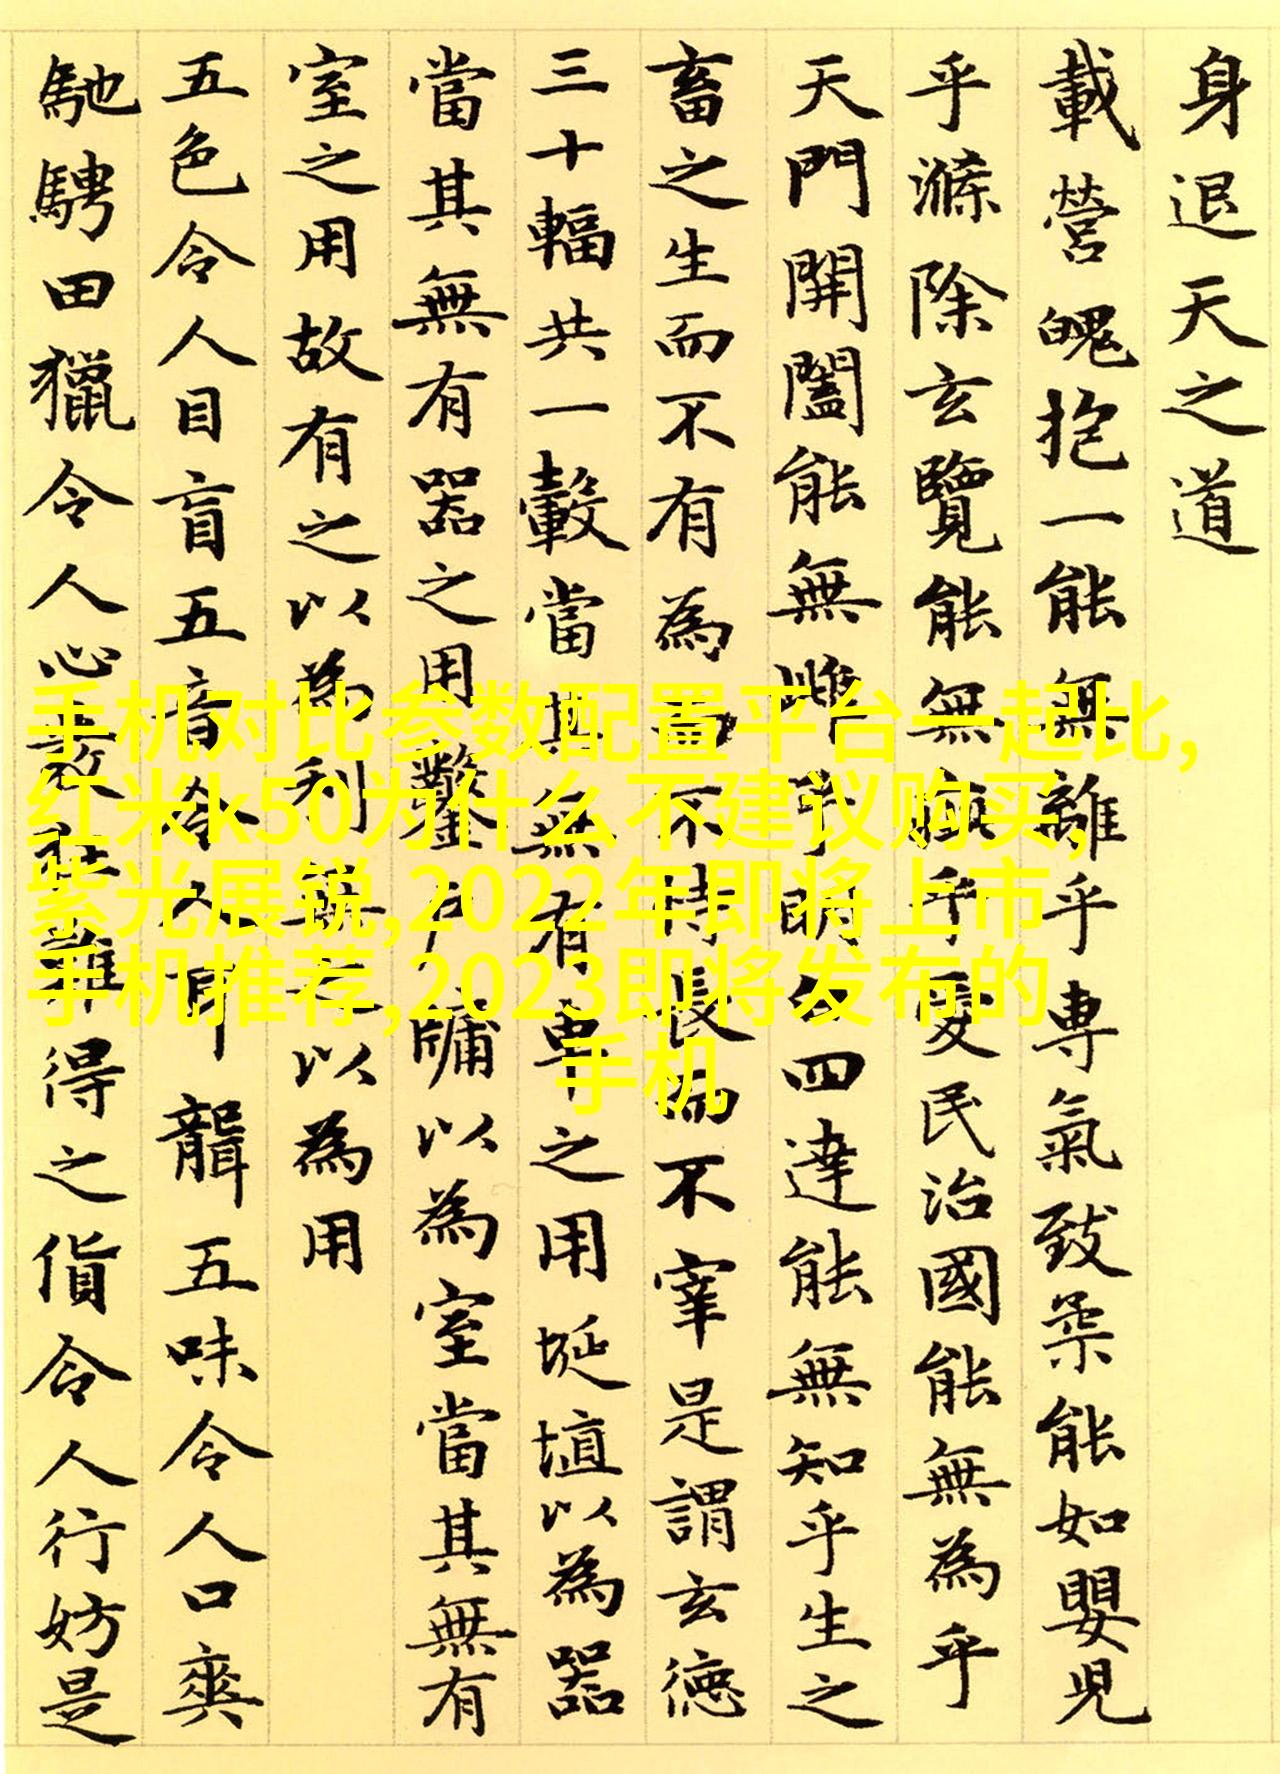 身退天之道
載營魄抱一能無離乎專氣致柔能如嬰児
乎滌除玄覽能無疵乎愛民治國能無為乎
天門開闔能無雌乎明白四達能無知乎生之
畜之生而不有為而不恃長而不宰是謂玄德
三十輻共一轂當其無有車之用埏埴以為器
當其無有器之用鑿戶牖以為室當其無有
室之用故有之以為利無之以為用
五色令人目盲五音令人耳聾五味令人口爽
馳騁田獵令人心發狂難得之貨令人行妨是
手机对比参数配置平台一起比,
红米k50为什么不建议购买,
紫光展锐,2022年即将上市
手机推荐,2023即将发布的
手机